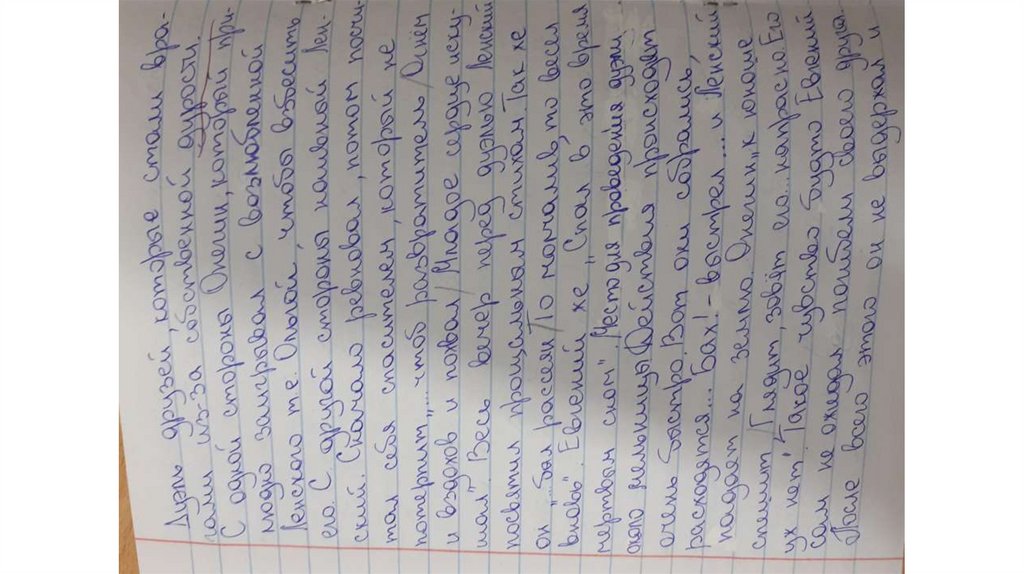 Дуэль друзей, которые стали вра-
гами из-за собственной дурости.
С одной стороны Онегин, который при-
людно заигрывал с возлюбленной
Ленского т.е. Ольгой, чтобы взбесить
его. С другой стороны наивный Лен-
ский. Сначало ревновал, потом посчи-
тал себя спасителем, который не
потерпит "...чтоб развратитель / Огнем
и вздохов и похвал / Младое сердце иску-
шал". Весь вечер перед дуэлью Ленский
посвятил прощальным стихам. Так же
он "...Был рассеян / То молчалив, то весел
вновь". Евгений же "Спал в это время
мертвым сном". Место для проведения дуэли,
около мельницы. Действия происходят
очень быстро. Вот они собрались,
расходятся... Бах! - выстрел... и Ленский
падает на землю. Онегин "к юноше
спешит, / Глядит, зовёт его... напрасно: Его
уж нет". Такое чувство будто Евгений
сам не ожидал погибели своего друга.
После всего этого он не выдержал и